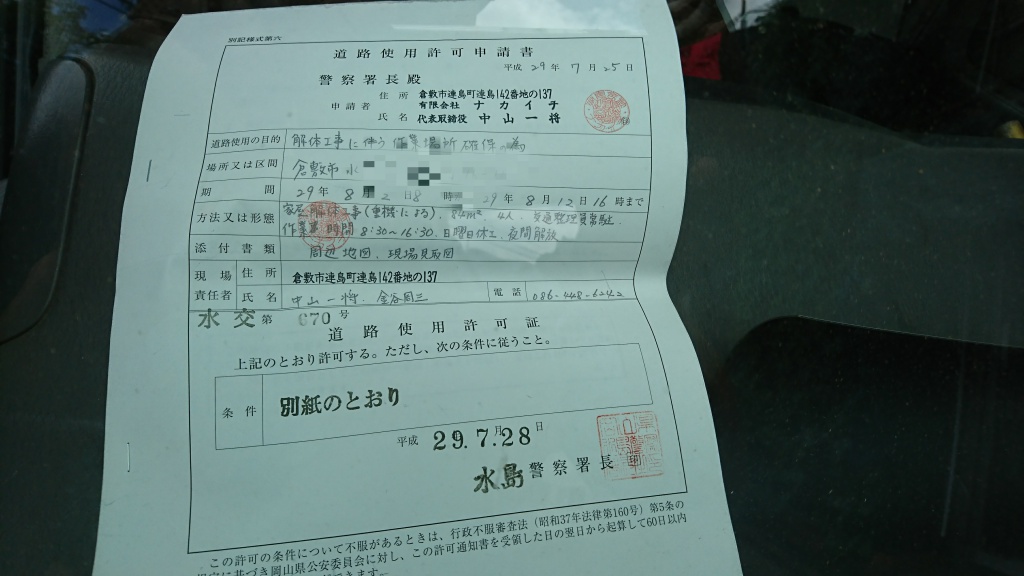 別記様式第六
道路使用許可申請書
平成 29年 7月 25日
警察署長殿
住所 倉敷市連島町連島142番地の137
申請者 有限会社 ナカイチ
氏名 代表取締役 中山一将
道路使用の目的 解体工事に伴う作業場所確保の為
場所又は区間 倉敷市水
期間 29年 8月 2日 8時 29年 8月12日16時まで
方法又は形態 家屋解体工事(重機による). 4人. 交通整理員常駐.
作業時間 8:30~16:30. 日曜日休工. 夜間解放
添付書類 周辺地図. 現場見取図
現場責任者 住所 倉敷市連島町連島142番地の137
氏名 中山一将. 金谷周三 電話 086-448-6242
水交第 670 号
道路使用許可証
上記のとおり許可する。ただし、次の条件に従うこと。
条件 別紙のとおり
平成 29.7.28 月 日
水島警察署長
この許可の条件について不服があるときは、行政不服審査法(昭和37年法律第160号)第5条の
規定に基づき岡山県公安委員会に対し、この許可通知書を受領した日の翌日から起算して60日以内